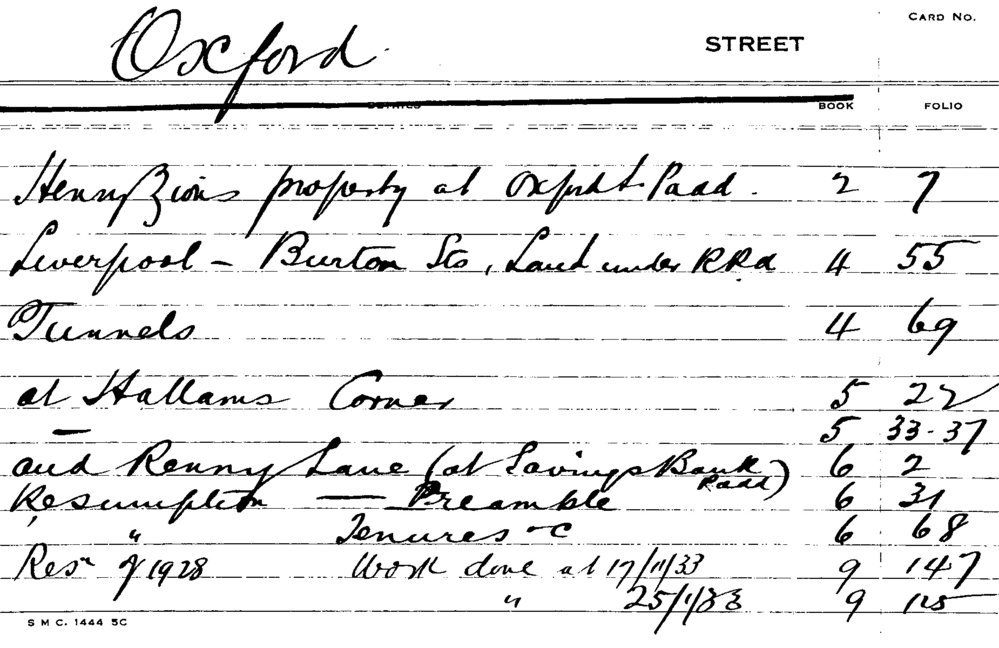 CARD NO.
Oxford STREET
DETAILS BOOK FOLIO
Henry Zions property at Oxford St Padd. 2 7
Liverpool - Burton Sts, Land under R Rd 4 55
Tunnels 4 69
at Hallams Corner 5 22
— 5 33-37
and Renny Lane (at Savings Bank Padd) 6 2
Resumption — Preamble 6 31
" Tenures &c 6 68
Resn of 1928 Work done at 17/11/33 9 147
" 25/1/33 9 125
S M C. 1444 5C